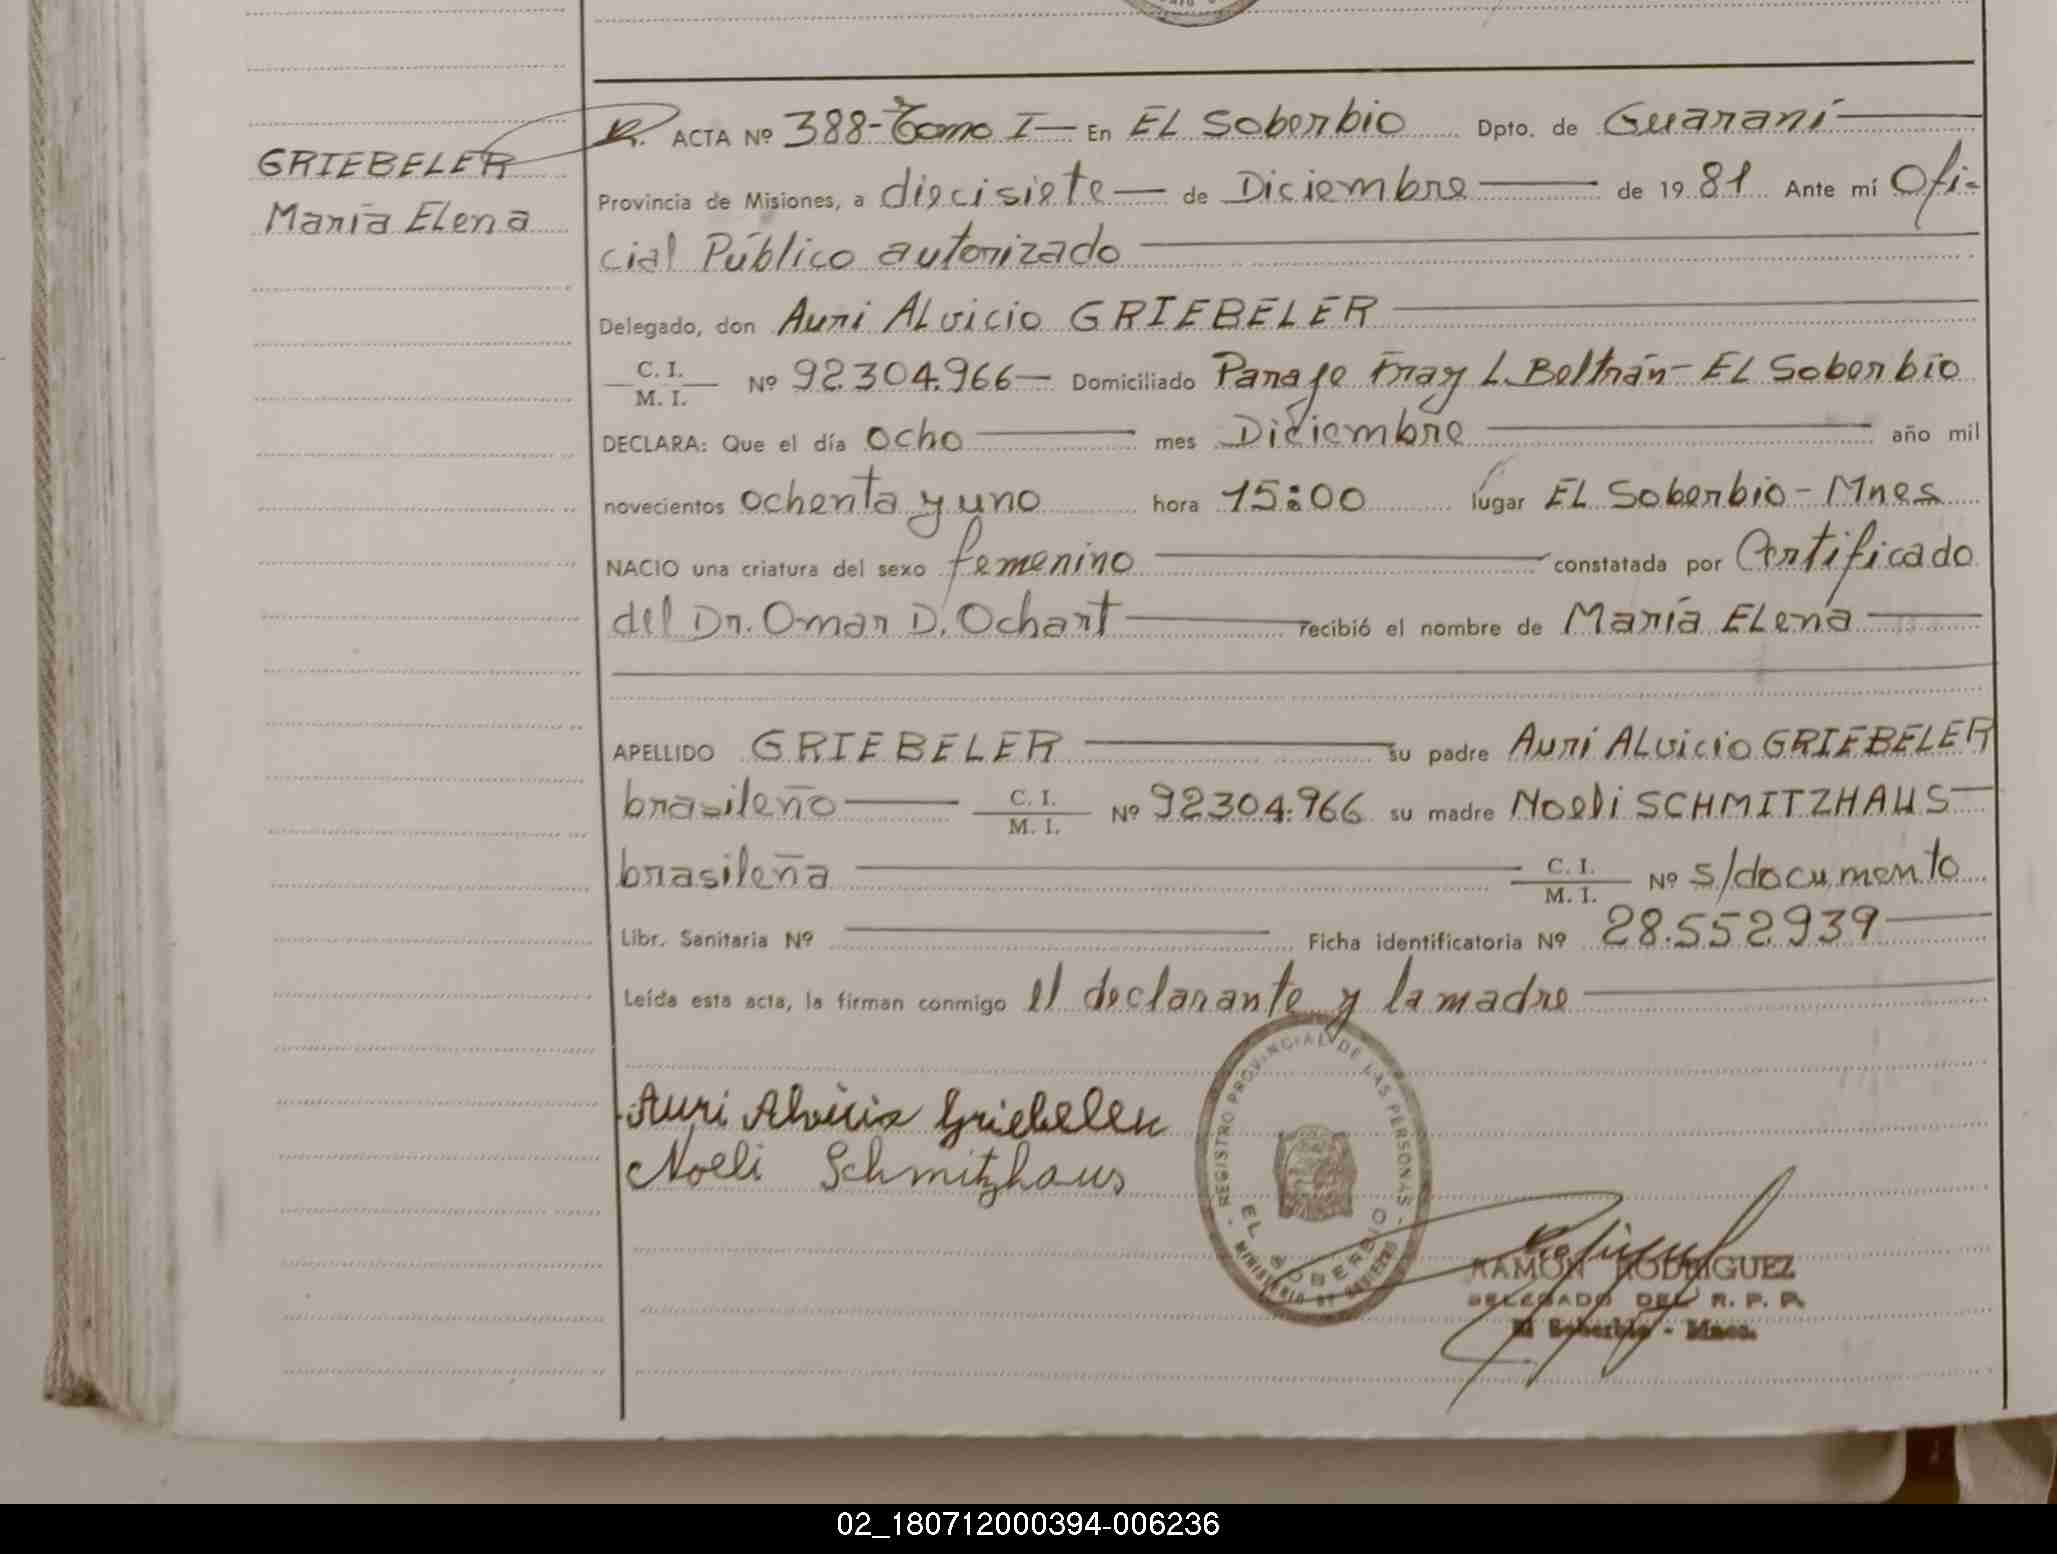 GRIEBELER
María Elena
ACTA Nº 388-Tomo I— En EL Soberbio Dpto. de Guaraní—
Provincia de Misiones, a diecisiete— de Diciembre— de 1981 Ante mí Ofi-
cial Público autorizado—
Delegado, don Auri ALvicio GRIEBELER—
C. I.
M. I. Nº 92.304.966— Domiciliado Paraje Fray L. Beltrán- EL Soberbio
DECLARA: Que el día ocho— mes Diciembre— año mil
novecientos ochenta y uno hora 15:00 lugar EL Soberbio - Mnes
NACIO una criatura del sexo femenino— constatada por Certificado
del Dr. Omar D. Ochart— recibió el nombre de María ELena—
APELLIDO GRIEBELER— su padre Auri ALvicio GRIEBELER
brasileño— C. I.
M. I. Nº 92304.966 su madre Noeli SCHMITZHAUS—
brasileña— C. I.
M. I. Nº s/documento
Libr. Sanitaria Nº — Ficha identificatoria Nº 28.552.939—
Leída esta acta, la firman conmigo el declarante y la madre—
Auri Alvicio Griebeler
Noeli Schmitzhaus
REGISTRO PROVINCIAL DE LAS PERSONAS
EL SOBERBIO
MINISTERIO DE GOBIERNO
RAMON RODRIGUEZ
DELEGADO DEL R. P. P.
El Soberbio - Mnes.
02_180712000394-006236